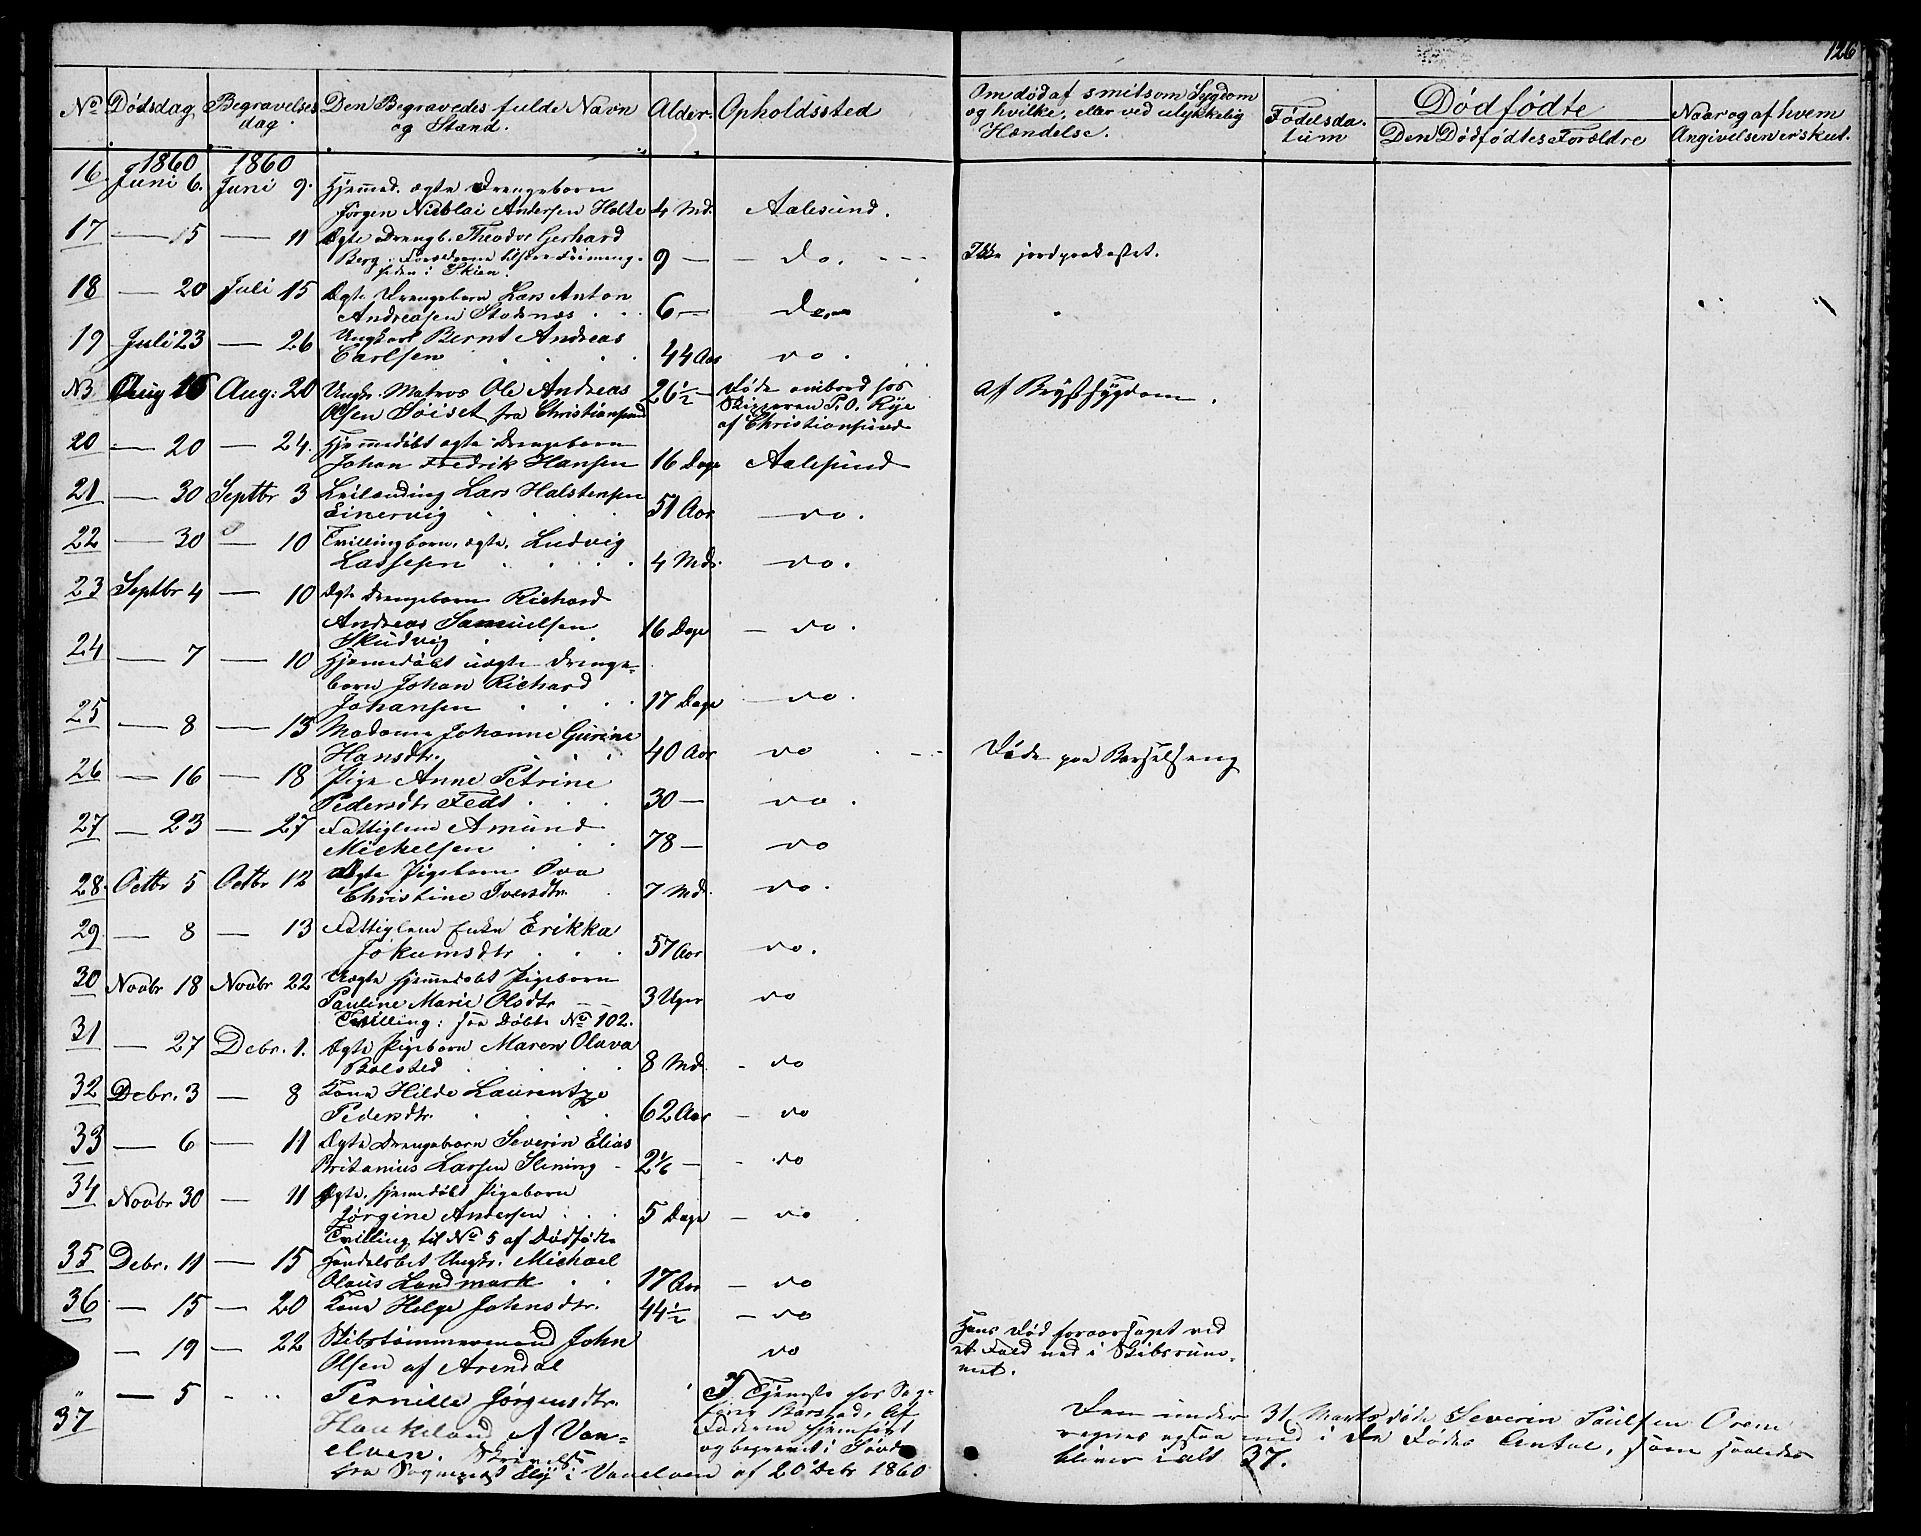 126
No Dødsdag Begravelses dag. Den Begravedes fulde Navn og Stand. Alder. Opholdssted Om død af smitsom Sygdom og hvilke, eller ved ulykkelig Hændelse. Fødelsdatum Dødfødte Den Dødfødtes Forældre Naar og af hvem Angivelsen er skeet.
1860 1860
16 Juni 6. Juni 9. Hjemmed. ægte Drengebarn
Jørgen Nicolai Andersen Holte 4 Md. Aalesund.
17 — 15 — 11 Ægte Drengb. Theodor Gerhard
Berg. Forældrene tilhører Frimenig-
heden i Skien. 9 — — do. Ikke jordpaakastet.
18 — 20 Juli 15 Ægte Drengebarn Lars Anton
Andreasen Stoksnæs 6 — do
19 Juli 23 — 26 Ungkarl Bernt Andreas
Carlsen 44 Aar do.
NB Aug 16 Aug: 20 Ungk. Matros Ole Andreas
Olsen Søiset fra Christiansund 26½ — Døde ombord hos
Skipperen P. O. Rye
af Christiansund af Brystsygdom.
20 — 20 — 24. Hjemmedøbt ægte Drengebarn
Johan Fredrik Hansen 16 Dage Aalesund
21 — 30 Septbr 3 Leilænding Lars Halstensen
Einervig 51 Aar — do.
22 — 30 — 10 Tvillingbarn, ægte, Ludvig
Lassesen 4 Md. do.
23 Septbr 4 — 10 Ægte Drengebarn Richard
Andreas Samuelsen
Skudvig 16 Dage — do.
24 — 7 — 10 Hjemmedøbt uægte Drenge-
barn Johan Richard
Johansen 17 Dage — do.
25 — 8 — 13 Madame Johanne Gurine
Hansdtr. 40 Aar do Døde paa Barselseng
26 — 16 — 18 Pige Anne Petrine
Pedersdtr Fedt 30 — do.
27 — 23 — 27 Fattiglem Amund
Michelsen 78 — do
28. Octbr 5 Octbr 12 Ægte Pigebarn Ova
Christine Iversdtr. 7 Md. do.
29 — 8 — 13 Fattiglem Enke Erikka
Jokumsdtr 57 Aar do.
30 Novbr 18 Novbr 22 Uægte hjemmedøbt Pigebarn
Pauline Marie Olsdtr 3 Uger do
Tvilling: fra Døbte No 102.
31 — 27 Debr. 1. Ægte Pigebarn Maren Olava
Bolsted 8 Md. — do
32 Debr. 3 — 8 Kone Hilde Laurentze
Pedersdtr. 62 Aar — do
33 — 6 — 11 Ægte Drengebarn Severin Elias
Britanius Larsen Slening 2⅙ — — do
34 Novbr 30 — 11 Ægte. hjemmedøbt Pigebarn
Jørgine Andersen 5 Dage — do
Tvilling til No 5 af Dødfødte
35 Debr. 11 — 15 Handelsbet Ungk. Michael
Olaus Landmark 17 Aar — do
36 — 15 — 20 Kone Helge Johnsdtr. 44½ — do
— 19 — 22 Skibstømmermand John
Olsen af Arendal do Hans Død foraarsaget ved
et Fald ned i Skibsrum-
met.
" — 5 Pernille Jørgensdtr.
37 Haukeland af Van-
elven.
I Tjeneste hos
Barstad, Af
Faderen hjemført
og begravet i
fra Sognepræst i Vanelven af 20 Debr 1860
Den under 31 Marts døde Severin Paulsen Orem
regnes ogsaa med i de Dødes Antal, som saaledes
bliver ialt 37.